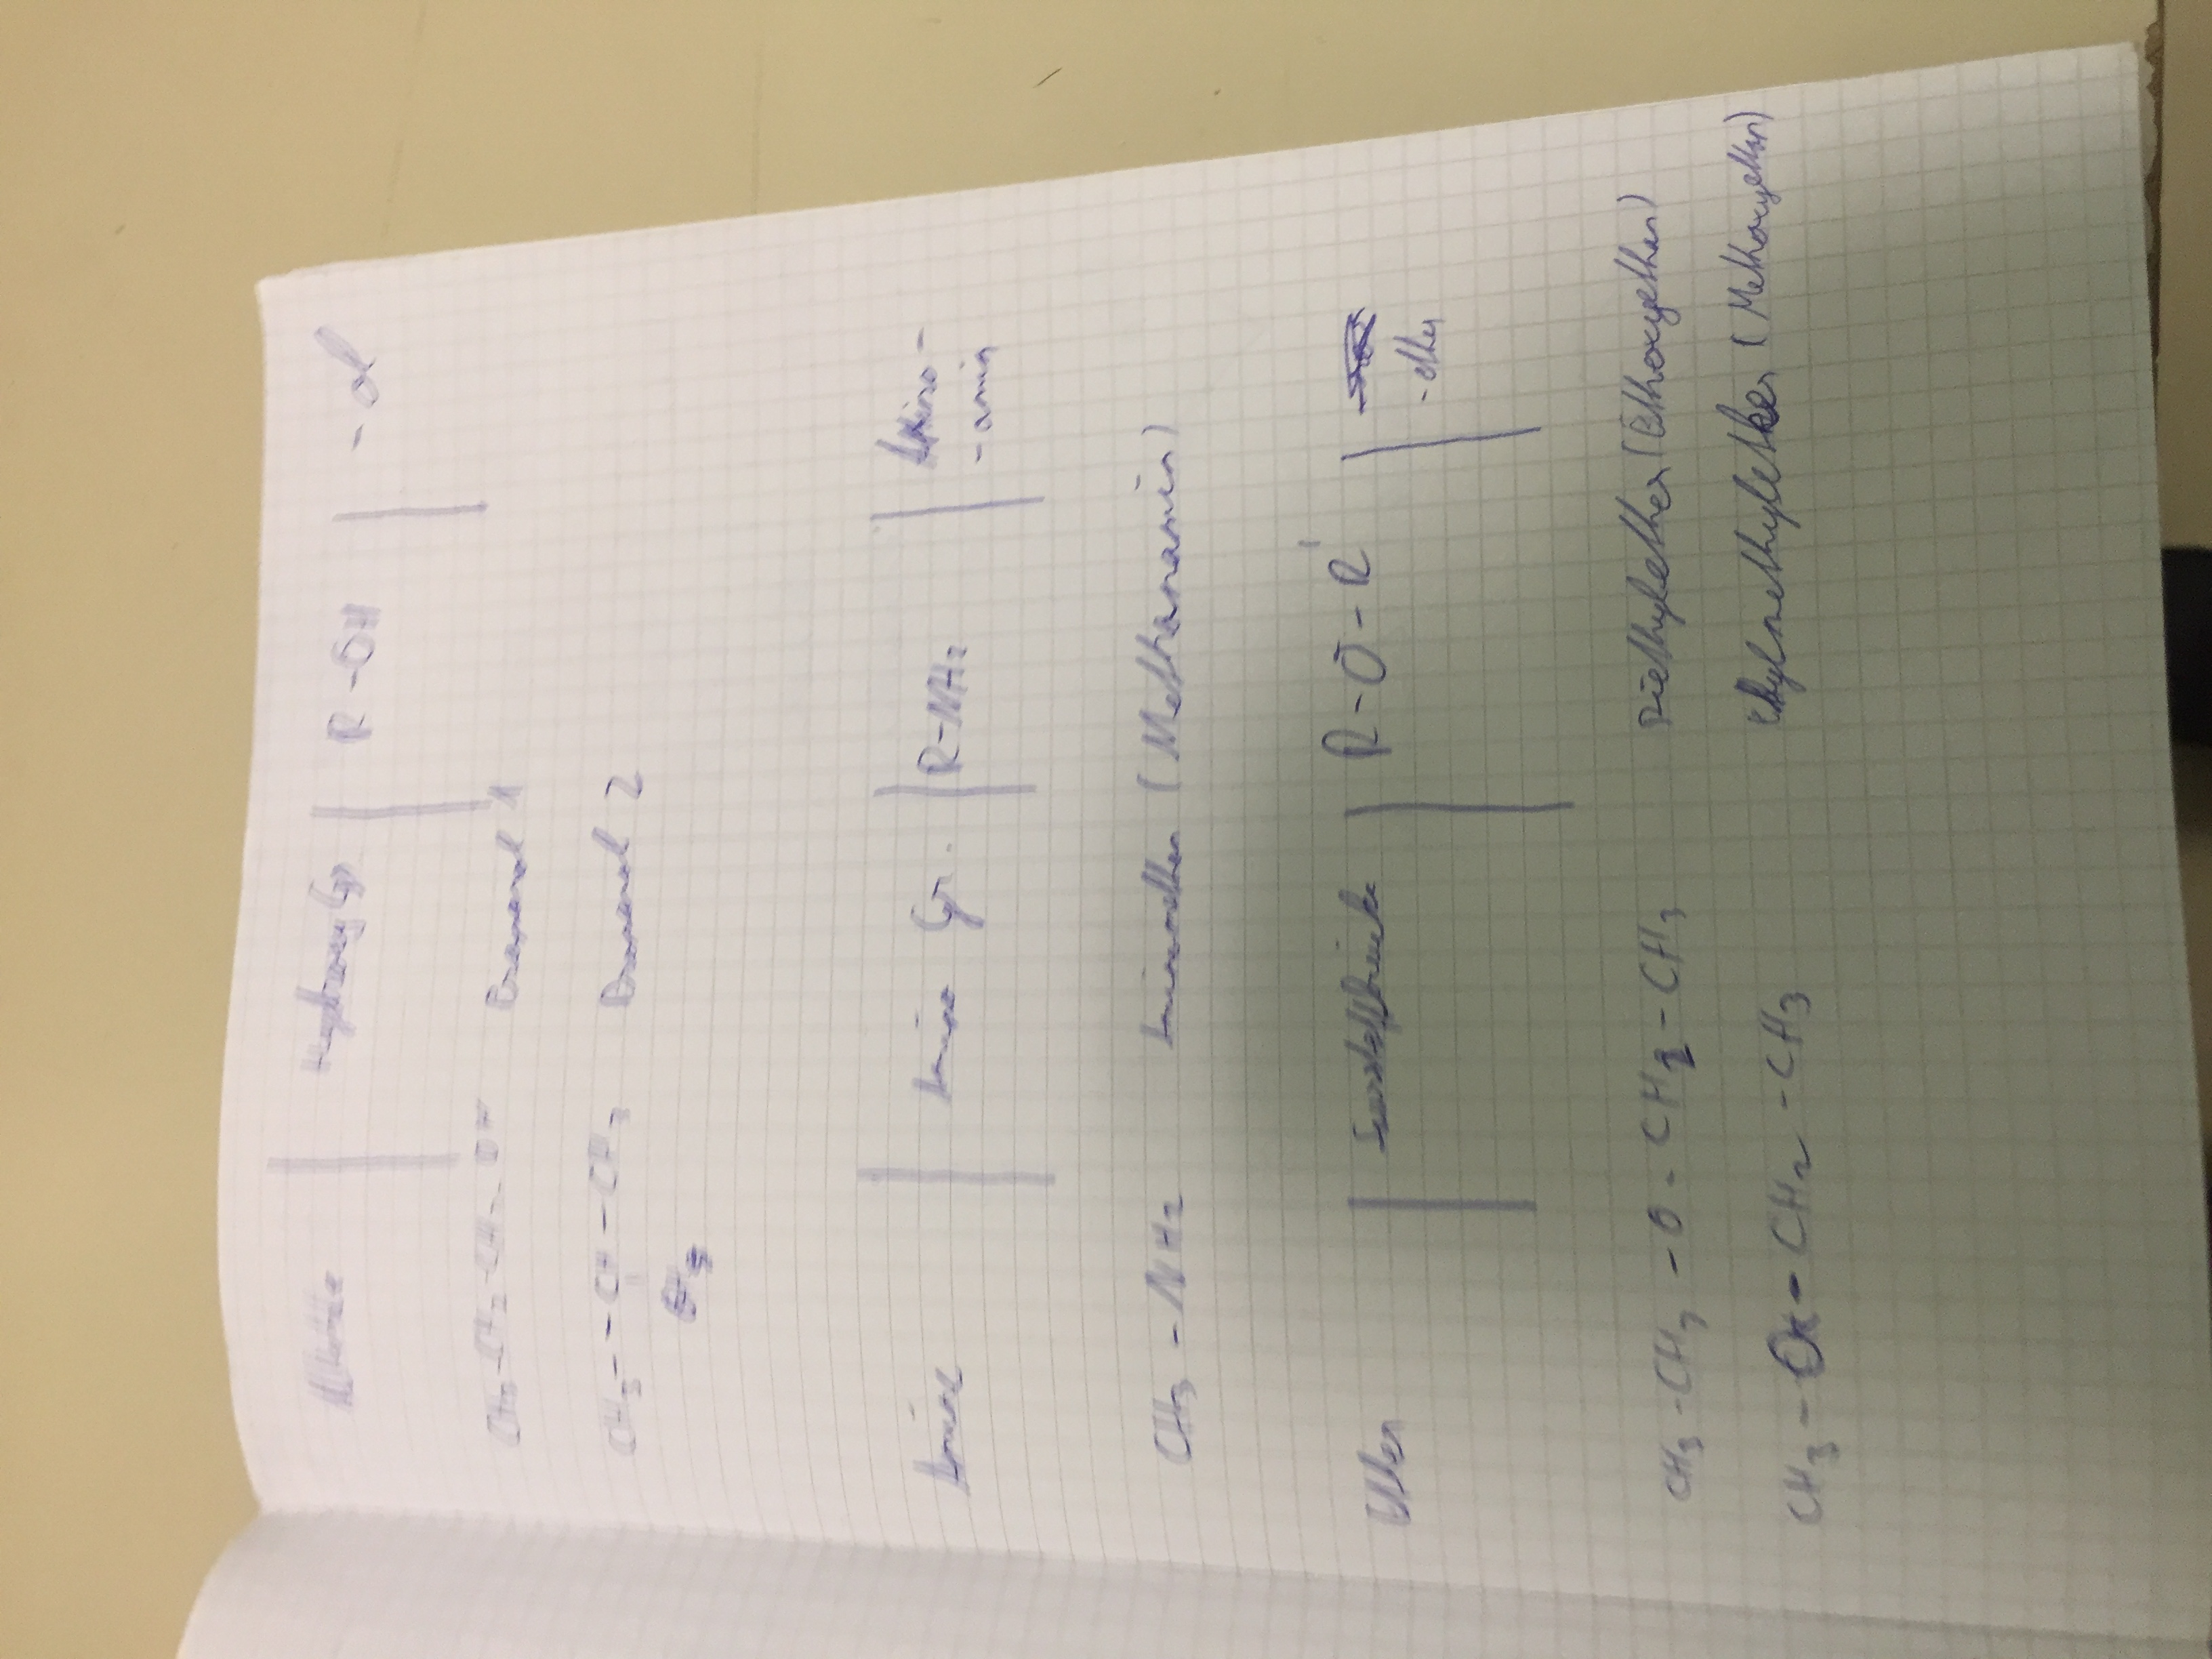 Alkohole | Hydroxy Gr. | R-OH | -ol
CH3-CH2-CH2-OH Propanol 1
CH3--CH-CH3 Propanol 2
Amine | Amino Gr. | R-NH2 | Amino-
-amin
CH3-NH2 Aminomethan (Methanamin)
Ether | Sauerstoffbrücke | R-O-R'
-ether
CH3-CH2-O-CH2-CH3 Diethylether (Ethoxyethan)
CH3-O-CH2-CH3 Ethylmethylether (Methoxyethan)